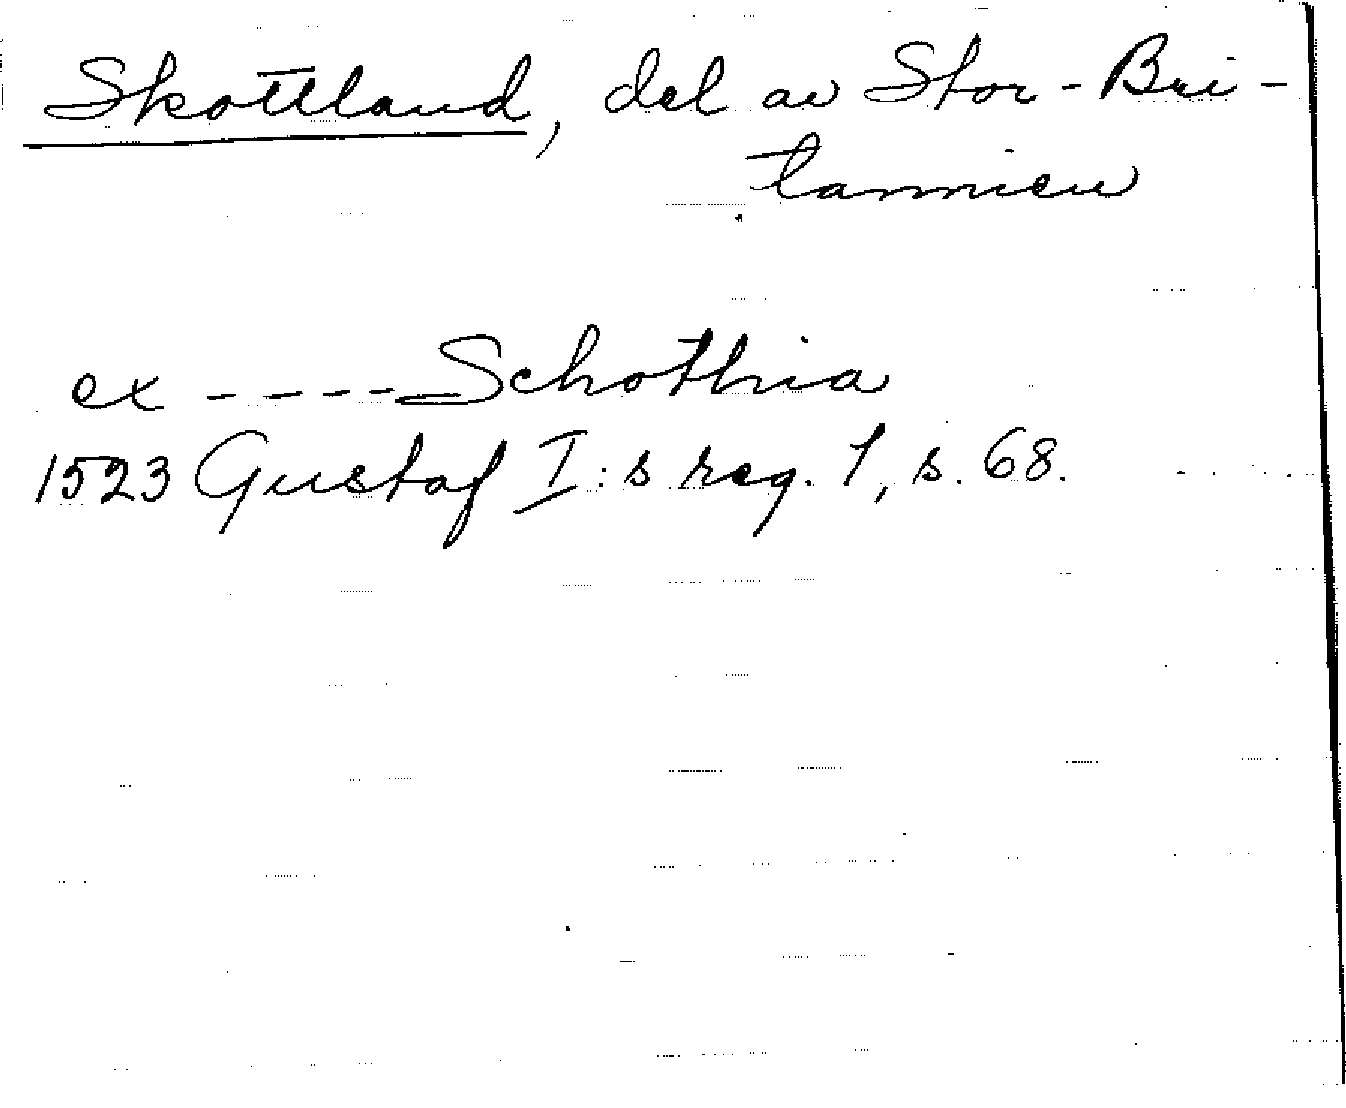 Skottland, del av Stor-Bri-
tannien
ex ----- Schothia
1523 Gustaf I:s reg. 1, s. 68.